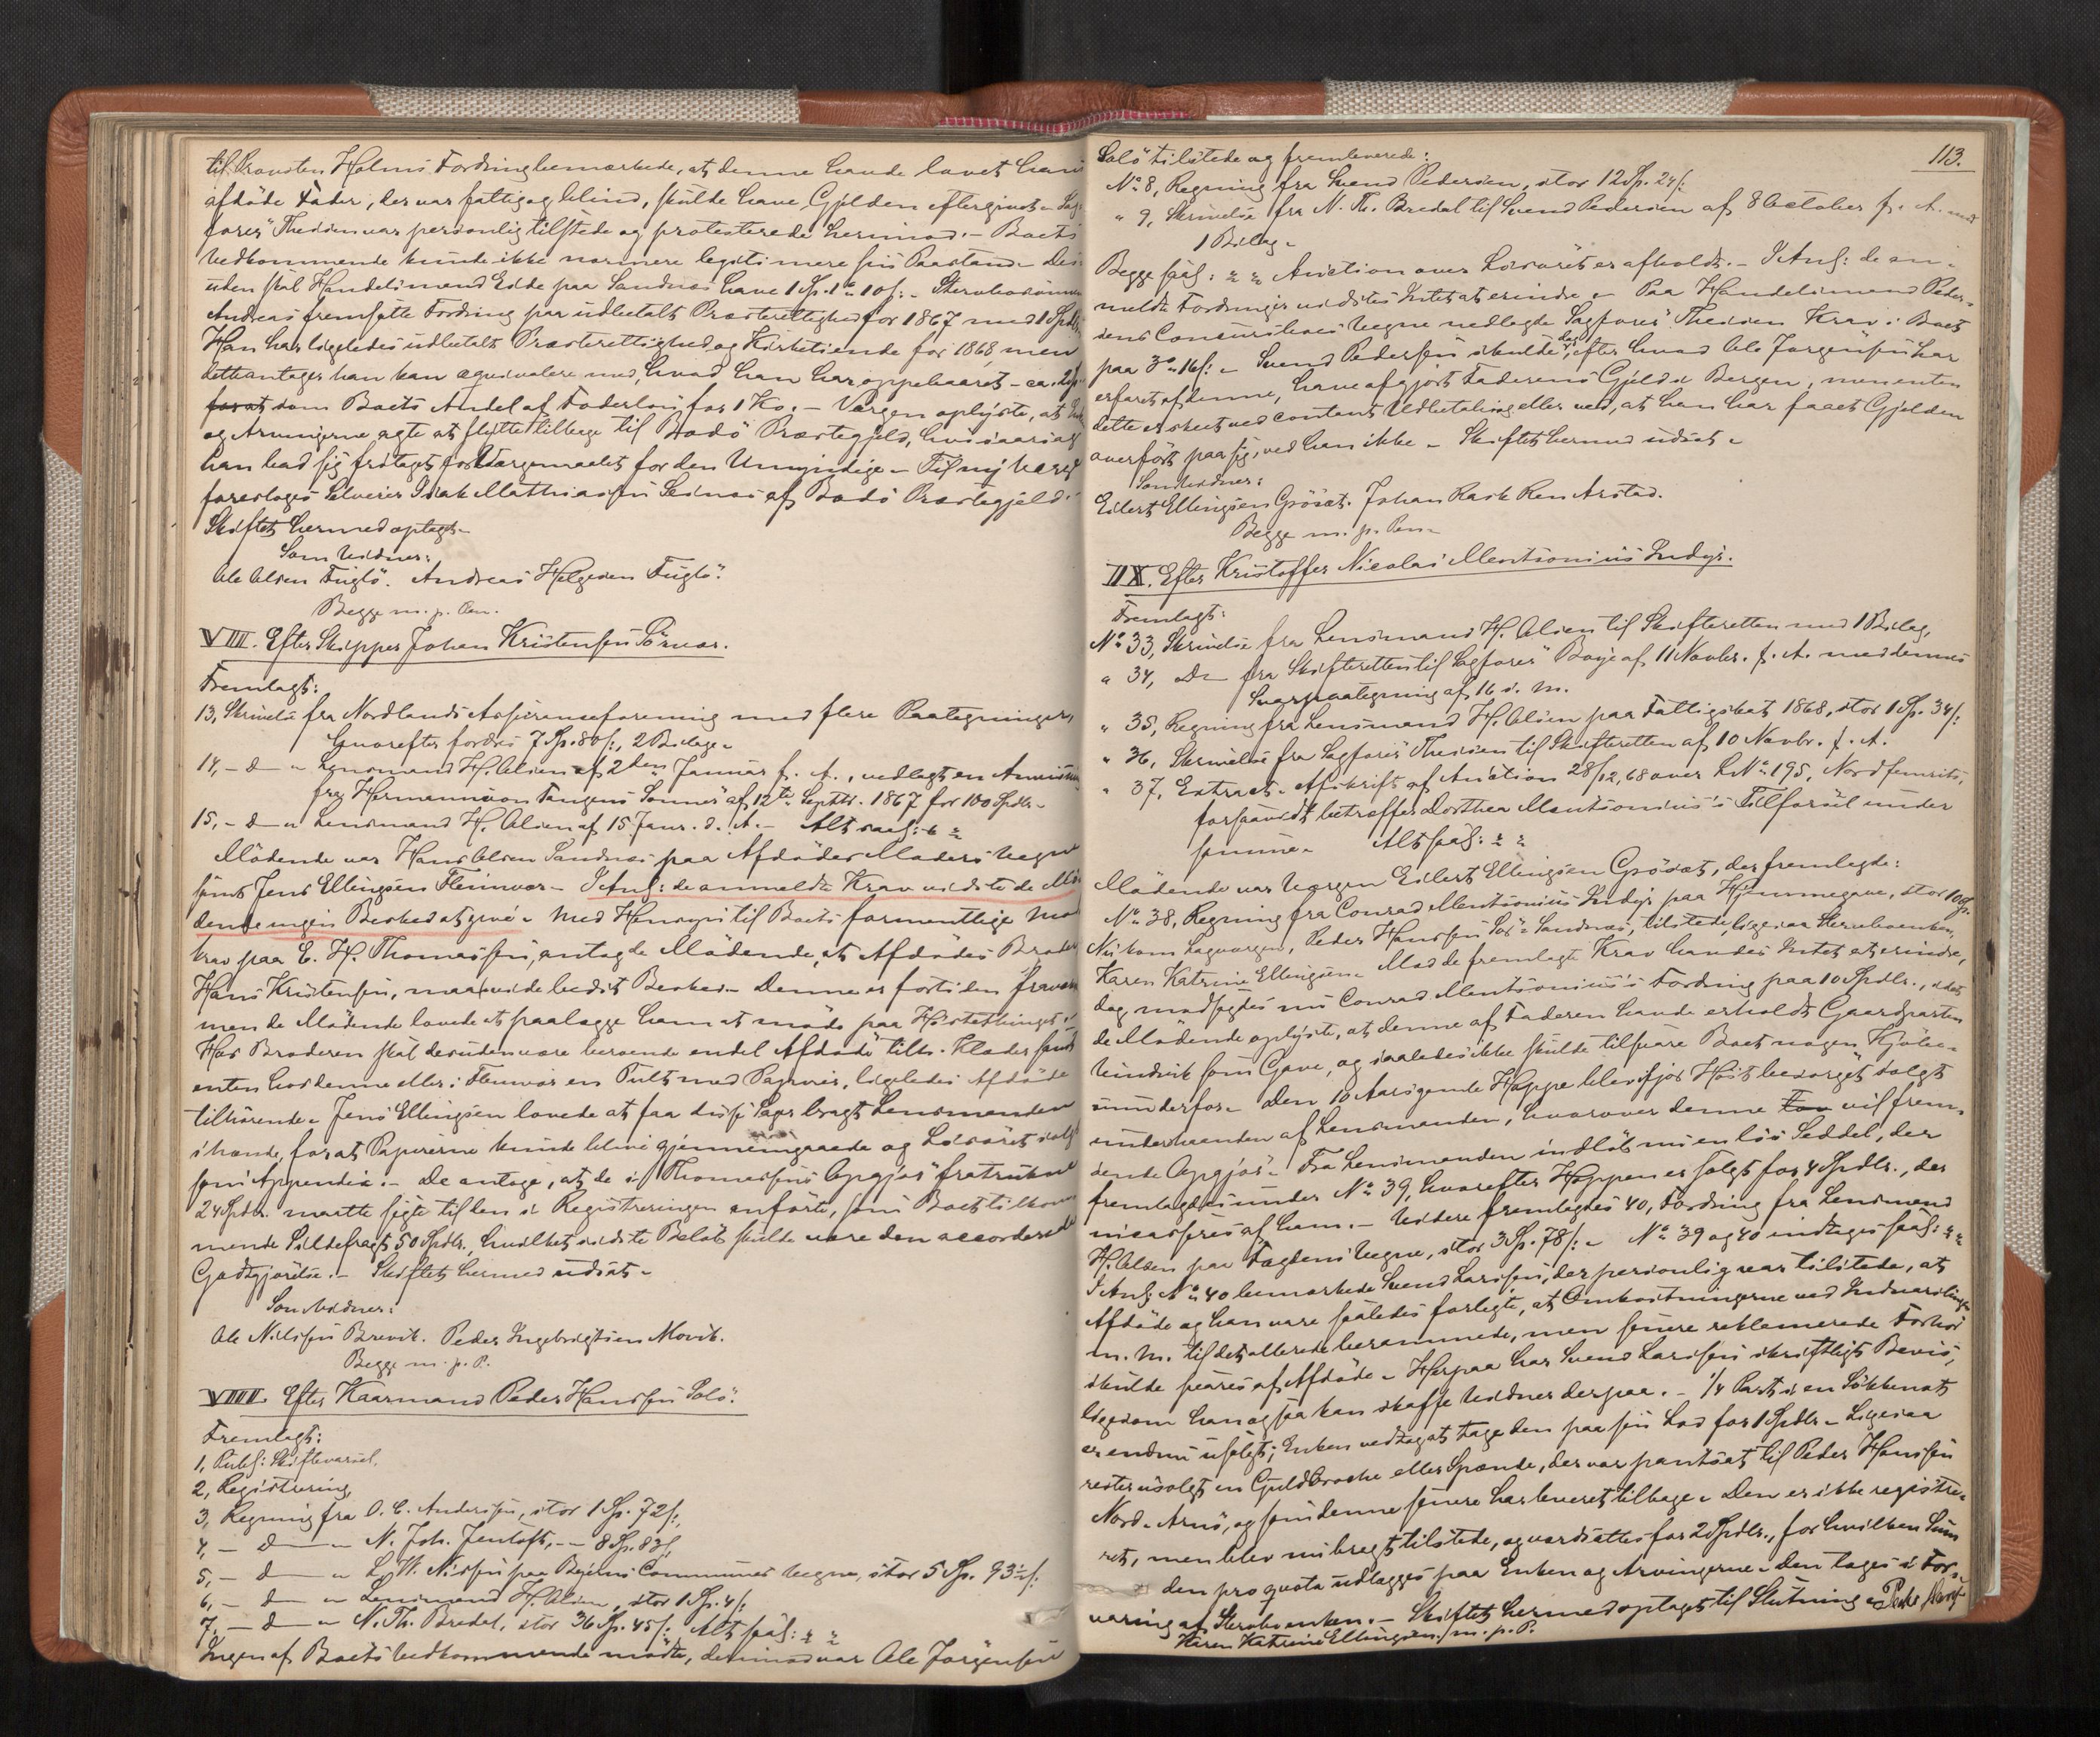 til Provsten Holms Fordring bemærkede, at denne havde lovet hans
afdöde Fader, der var fattig og blind, skulde have Gjelden eftergivet. Sag-
förer Thesen var personlig tilstede og protesterede herimod. – Boets
Vedkommende kunde ikke nærmere legitimere sin Paastand. Des-
uden skal Handelsmand Edde paa Sandnæs have 1 Sp. 1 10 s: –
Andreas fremsatte Fordring paa udbetalt Præsterettighed for 1867 med 1 Spdlr.
Han har ligeledes udbetalt Præsterettighed og Kirketiende for 1868, men
dette antager han kan æqvivalere med, hvad han har oppebaaret – ca. 2
som Boets Andel af Foderløn for 1 Ko. – Værgen oplyste, at
og Arvingerne agte at flytte tilbage til Bodö Præstegjeld, hvisaarsag
han bad sig fritaget for Værgemaalet for den Umyndige – Til ny Værge
foreslages Selveier Isak Mathiassen af Bodö Præstegjeld.
Skiftet hermed optaget.
Som Vidner:
Ole Olsen Fuglö. Andreas Helgesen Fuglö.
Begge m. p. Pen.
VIII. Efter Skipper Johan Kristensen Törvær.
Fremlagt:
13, Skrivelse fra Nordlands Assuranseforening med flere Paategninger,
hvorefter fordres 7 Sp. 80 s:, 2 Bilage.
14, – D – Lensmand H. Olsen af 2den Januar f. A., vedlagt en Anviisning
fra Hermann von Tangens Sönner af 12te Septbr. 1867 for 100 Spdlr.
15, – D – Lensmand H. Olsen af 15 Janr. d. A. – Alt saal:
Mödende var Hans Olsen Sandnæs paa Afdödes Moders Vegne
samt Jens Ellingsen Fleinvær – I Anl: de anmeldte Krav vidste de Mö-
dende ingen Besked at give. Med Hensyn til Boets formentlige Mod-
krav paa C. H. Thomassen, antog de Mödende, at Afdödes Broder
Hans Kristensen, maa vide bedst Besked. Denne er fortiden fraværende
men de Mödende lovede at paalægge ham at möde paa Hösttethinget.
Hos Broderen skal desuden være beroende endel Afdöde tilh. Klæder samt
enten hos denne eller i Fleinvær en Pult med Papirer, ligeledes Afdöde
tilhörende. Jens Ellingsen lovede at faa disse Sager bragt Lensmanden
ihænde, forat Papirerne kunde blive gjennemgaaede og Lösöret solgt
som Appendix. – De antage, at de i Thomassens Opgjör fratrukne
24 Spdlr. maatte sigte til den i Registreringen anförte, som Boet tilkom-
mende Sildefragt 50 Spdlr, hvilket sidste Belöb skulde være den accorderede
Godtgjörelse. – Skiftet hermed udsat.
Som Vidner:
Ole Nilssen Brevik. Peder Ingebrigtsen Movik.
Begge m. p. P.
VIIII. Efter Kaarmand Peder Hanssen Solö.
Fremlagt:
1, Publ: Skiftevarsel.
2, Registrering,
3, Regning fra O. C. Anderssen, stor 1 Sp. 72 s:,
4, – D – N. Joh. Jentoft, – – 8 Sp. 83 s,
5, – D – L. W. Nissen paa Beierns Communes Vegne, stor 5 Sp. 93½ s:
6, – D – Lensmand H. Olsen, stor 1 Sp. 4 s:
7, – D – N. Th. Bredal, stor 36 Sp. 45 s:, Alt saal:
Ingen af Boets Vedkommende mödte, derimod var Ole Jørgensen
113.
Solö tilstede og fremleverede:
No 8, Regning fra Svend Pedersen, stor 12 Sp. 24 s:
" 9, Skrivelse fra N. Th. Bredal til Svend Pedersen af 8 October f. A. med
1 Bilag.
Begge saal: Auction over Lösöret er afholdt. – I Anl: de an-
meldte Fordringer vidstes Intet at erindre. – Paa Handelsmand Peder-
sens Concursboes Vegne nedlagde Sagförer Thesen Krav i Boet
paa 3 16 s: – Svend Pedersen skulde, efter hvad Ole Jørgensen har
erfaret af denne, have afgjort Faderens Gjeld i Bergen, men enten
dette er skeet ved contant Udbetaling eller ved, at han har faaet Gjelden
overfört paa sig, ved han ikke – Skiftet hermed udsat.
Som Vidner:
Eilert Ellingsen Grösæt. Johan Rask Ren Arstad.
Begge m. p. Pen.
IX. Efter Kristoffer Nicolai Mentsonius Indyr.
Fremlagt:
No 33, Skrivelse fra Lensmand H. Olsen til Skifteretten med 1 Bilag,
" 34, D fra Skifteretten til Sagförer Boye af 11 Novbr. f. A. med dennes
Svarpaategning af 16 s. M.
" 35, Regning fra Lensmand H. Olsen paa Fattigskat 1868, stor 1 Sp. 34 s:
" 36, Skrivelse fra Sagförer Thesen til Skifteretten af 10 Novbr. f. A.
" 37, Extract-Afskrift af Auction 28/12 68 over L No 195, Nordfernris,
forsaavidt betræffer Dorthea Mentsonius's Tilforsel under
samme. Alt saal:
Mödende var Værgen Eilert Ellingsen Grösæt, der fremlagde:
No 38, Regning fra Conrad Mentsonius Indyr paa Hjemmegave, stor 10 Sp.
Nu kom Lagværgen, Peder Hanssen Sandnæs, tilstede, ligesaa Stervboenken,
Karen Katrine Ellingsen. Mod de fremlagte Krav havdes Intet at erindre,
dog modsagdes nu Conrad Mentsonius's Fordring paa 10 Spdlr., idet
de Mödende oplyste, at denne af Faderen havde erholdt Gaardparten
Kindvik som Gave, og saaledes ikke skulde tilsvare Boet nogen
sum derfor. Den 10 Aarsgamle Hoppe blev ifjor Höst besörget solgt
underhaanden af Lensmanden, hvorover denne vil frem-
sende Opgjör. Fra Lensmanden indlöb nu en lös Seddel, der
fremlagdes under No 39, hvorefter Hoppen er solgt for 4 Spdlr., der
af ham. – Videre fremlagdes 40, Fordring fra Lensmand
H. Olsen paa Fogdens Vegne, stor 3 Sp. 78 s: – No 39 og 40 indtages saal:
I Anl: No 40 bemærkede Svend Larssen, der personlig var tilstede, at
Afdöde og han vare saaledes forligte, at Omkostningerne ved Indvarslingen
m. M. til det allerede berammede, men senere reklamerede Forhör
skulde bæres af Afdöde. Herpaa har Svend Larssen skriftligt Bevis,
ligesom han ogsaa kan skaffe Vidner derpaa. – 1/4 Part i en Sökkenot
er endnu usolgt; Enken vedtog at tage den paa sin Lod for 1 Spdlr. – Ligesaa
rester usolgt en Guldbroche eller Spænde, der var pantsat til Peder Hanssen
Nord-Arnö, og som denne senere har leveret tilbage. Den er ikke registre-
ret, men blev nu bragt tilstede, og værdsattes for 2 Spdlr., for hvilken Sum
den pro qvota udlægges paa Enken og Arvingerne. Den toges i For-
varing af Stervboenken. – Skiftet hermed optaget til Slutning.
Karen Katrine Ellingsen. /m. p. P.